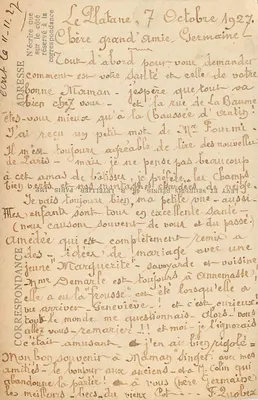 Le Platane, 7 Octobre 1927.
Chère grand'amie, Germaine
Tout d'abord pour vous demander
comment est votre santé et celle de votre
bonne Maman - j'espère que tout va
bien chez vous - et la rue de la Baume
êtes-vous mieux qu'à la Chaussée d'Antin!
J'ai reçu un petit mot de
Il m'est toujours agréable de lire des nouvelles
de Paris - mais je ne pense pas beaucoup
à cet amas de bâtisses, je préfère les champs
bien verts
Je vais toujours bien, ma petite vue - aussi
Mes enfants sont tous en excellente santé -
(nous causons souvent de vous et du passé)
Amédée qui est complètement remis a
des "idées" de mariage avec une
jeune "Marguerite" savoyarde et voisine
Mme Demarle est toujours à Annemasse,
elle a eu la frousse - été lorsqu'elle a
vu arriver Geneviève! et c'est curieux!
tout le monde me questionnait. Alors vous
allez vous remarier!! et moi je l'ignorais
c'était amusant - j'en ai bien rigolé -
Mon bon souvenir à Maman avec mes
amitiés - le bonjour aux anciens et à M. Colin qui
abandonne la partie! à vous chère Germaine
les meilleurs du vieux
ADRESSE
N'écrire que
sur le côté
réservé à la
correspondance
CORRESPONDANCE